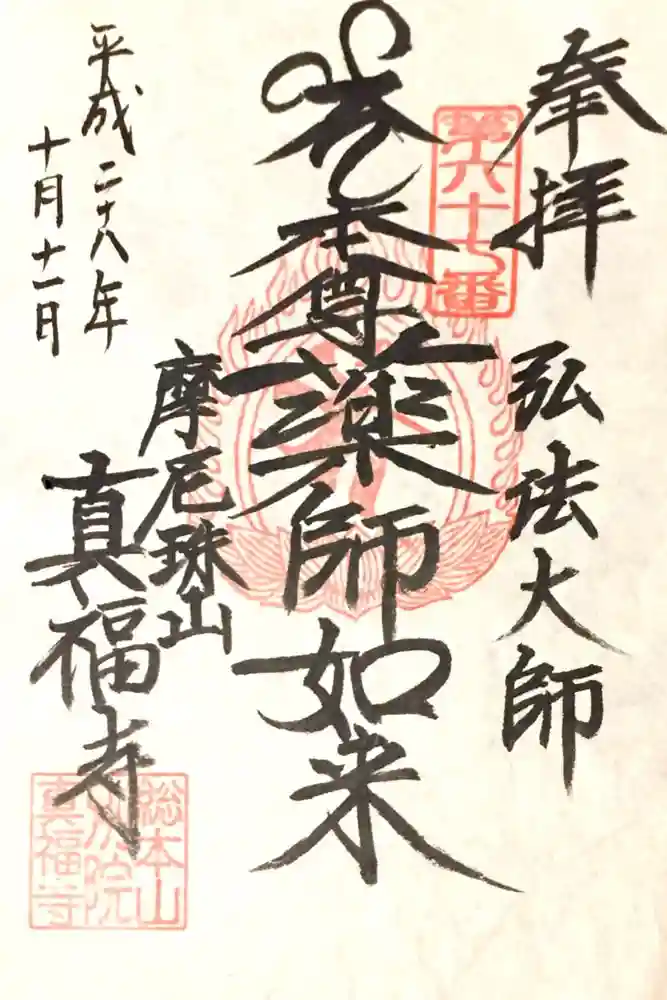 奉拝
弘法大師
第六十七番
本尊薬師如来
摩尼珠山
真福寺
平成二十八年
十月十一日
総本山
別院
真福寺